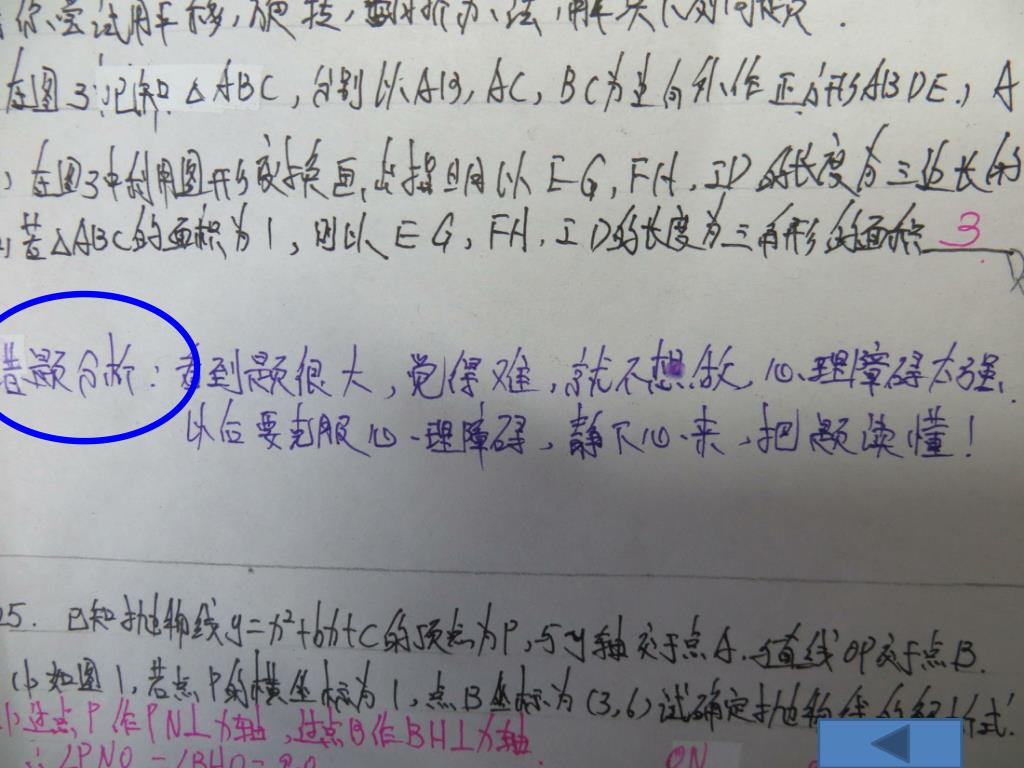 你尝试用平移,旋转,翻折办法,解决下列问题.
在图3:已知△ABC,分别以AB,AC,BC为边向外作正方形ABDE,A
在图3中利用图形变换画出指明以EG,FH,ID的长度为三边长的
若△ABC的面积为1,则以EG,FH,ID的长度为三角形的面积 3
错题分析:看到题很大,觉得难,就不想做,心理障碍太强.
以后要克服心理障碍,静下心来,把题读懂!
25. 已知抛物线y=x²+bx+c的顶点为P,与y轴交于点A.与直线OP交于点B.
(1)如图1,若点P的横坐标为1,点B坐标为(3,6)试确定抛物线的解析式.
过点P作PN⊥x轴,过点B作BH⊥x轴.
∴∠PNO=∠BHO=90 ON